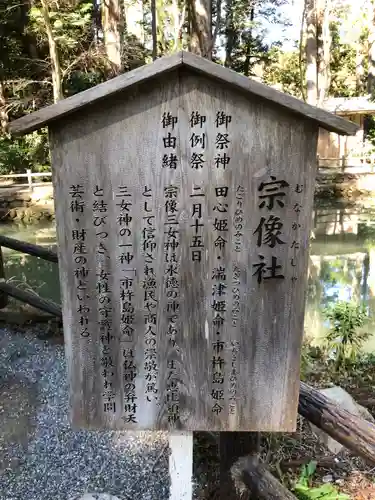 宗像社
むなかたしゃ
御祭神 田心姫命・湍津姫命・市杵島姫命
たごりひめのみこと たきつひめのみこと いちきしまひめのみこと
御例祭 二月十五日
御由緒 宗像三女神は水徳の神であり、また
として信仰され漁民や商人の崇敬が篤い
三女神の一神「市杵島姫命」は仏神の弁財天
と結びつき、女性の守護神と敬われ学問
芸術・財産の神といわれる。